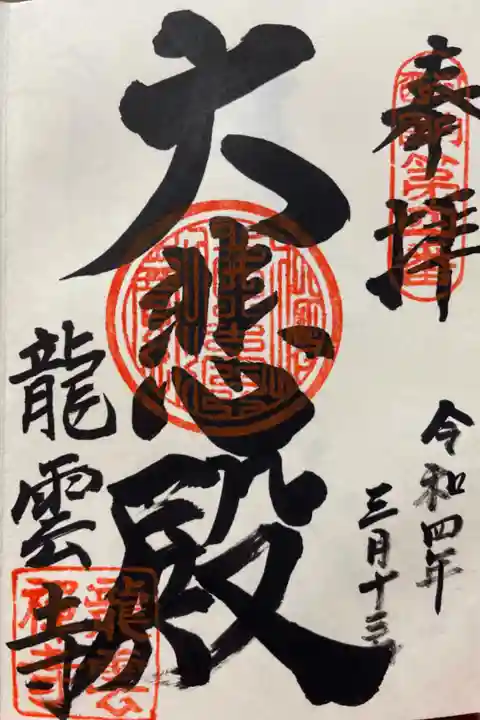 奉拝
令和四年
三月十三
大悲殿
龍雲寺
龍雲禅寺